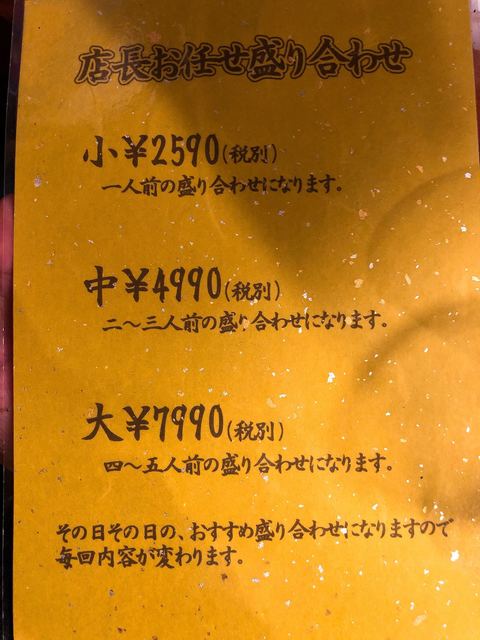 店長お任せ盛り合わせ
小¥2590(税別)
一人前の盛り合わせになります。
中¥4990(税別)
二～三人前の盛り合わせになります。
大¥7990(税別)
四～五人前の盛り合わせになります。
その日その日の、おすすめ盛り合わせになりますので
毎回内容が変わります。